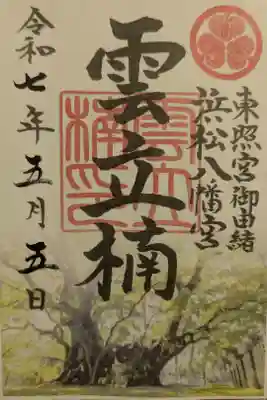 東照宮御由緒
浜松八幡宮
雲立楠
令和七年五月五日